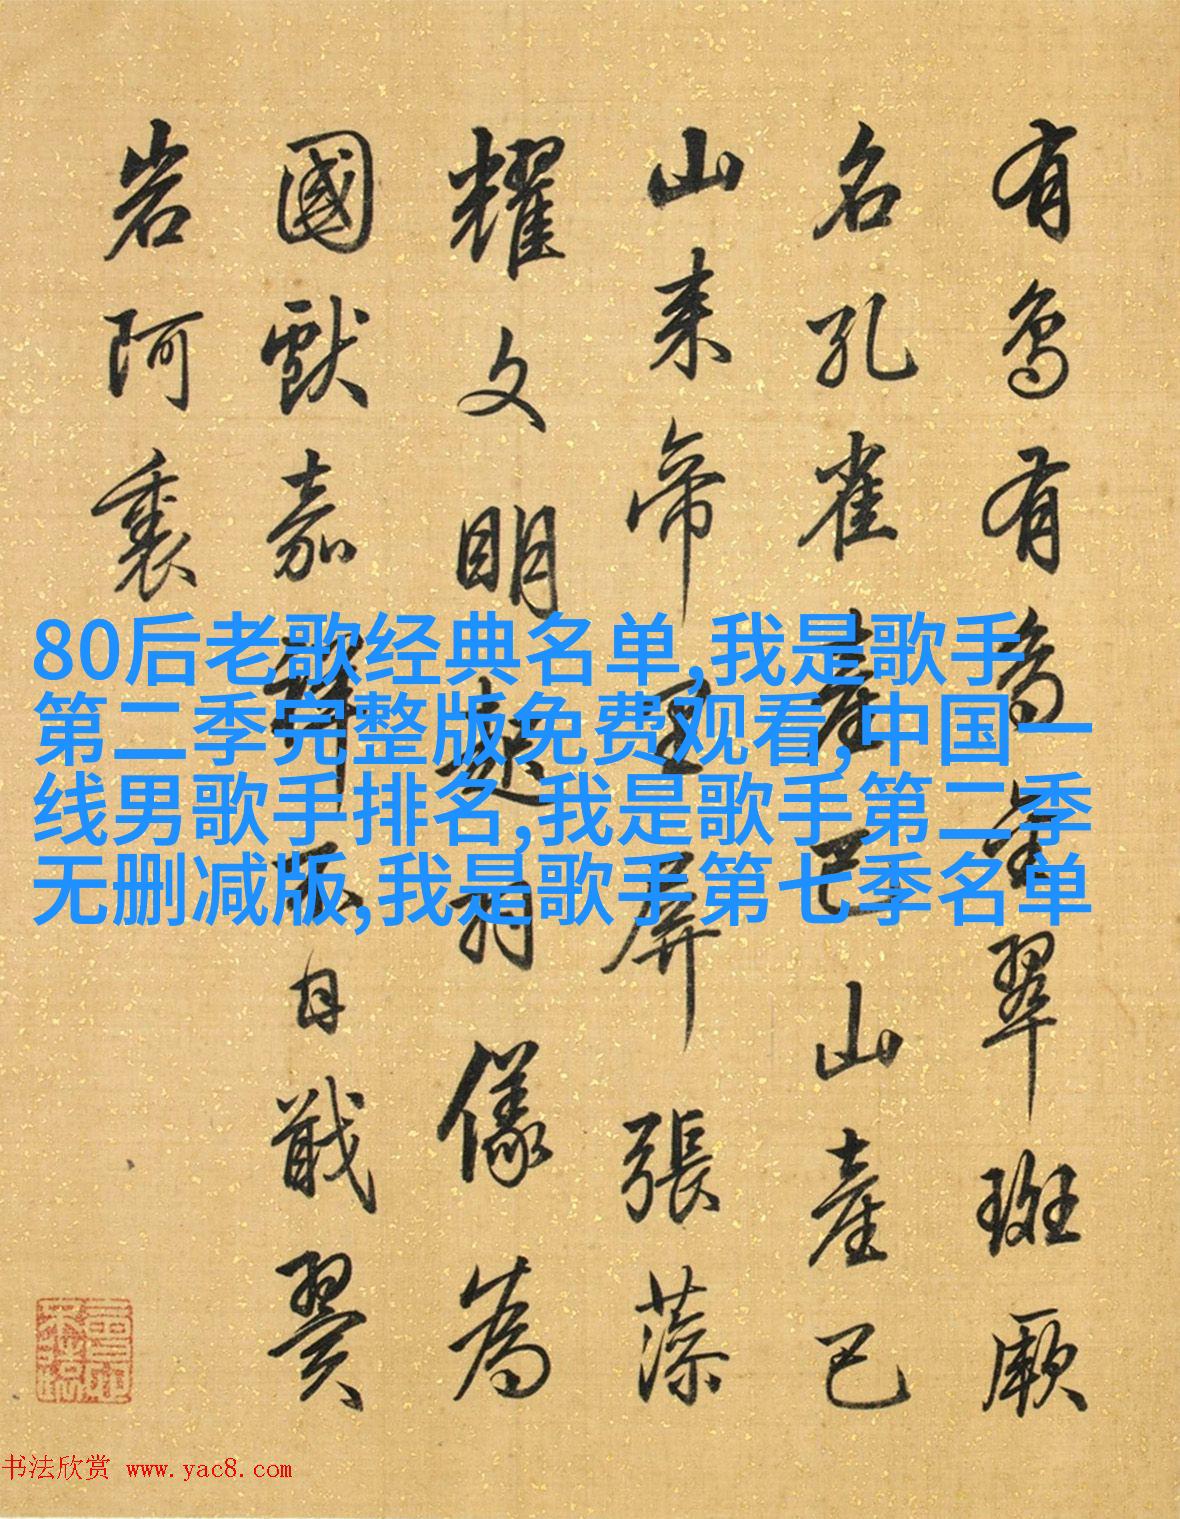 有鳥有鳥金翠斑厥
名孔雀產巴山產巴
山来帝王屏張藻
耀文明羽儀為
國獻嘉不日戢翼
岩阿裏
80后老歌经典名单,我是歌手
第二季完整版免费观看,中国一
线男歌手排名,我是歌手第二季
无删减版,我是歌手第七季名单
书法欣赏 www.yac8.com